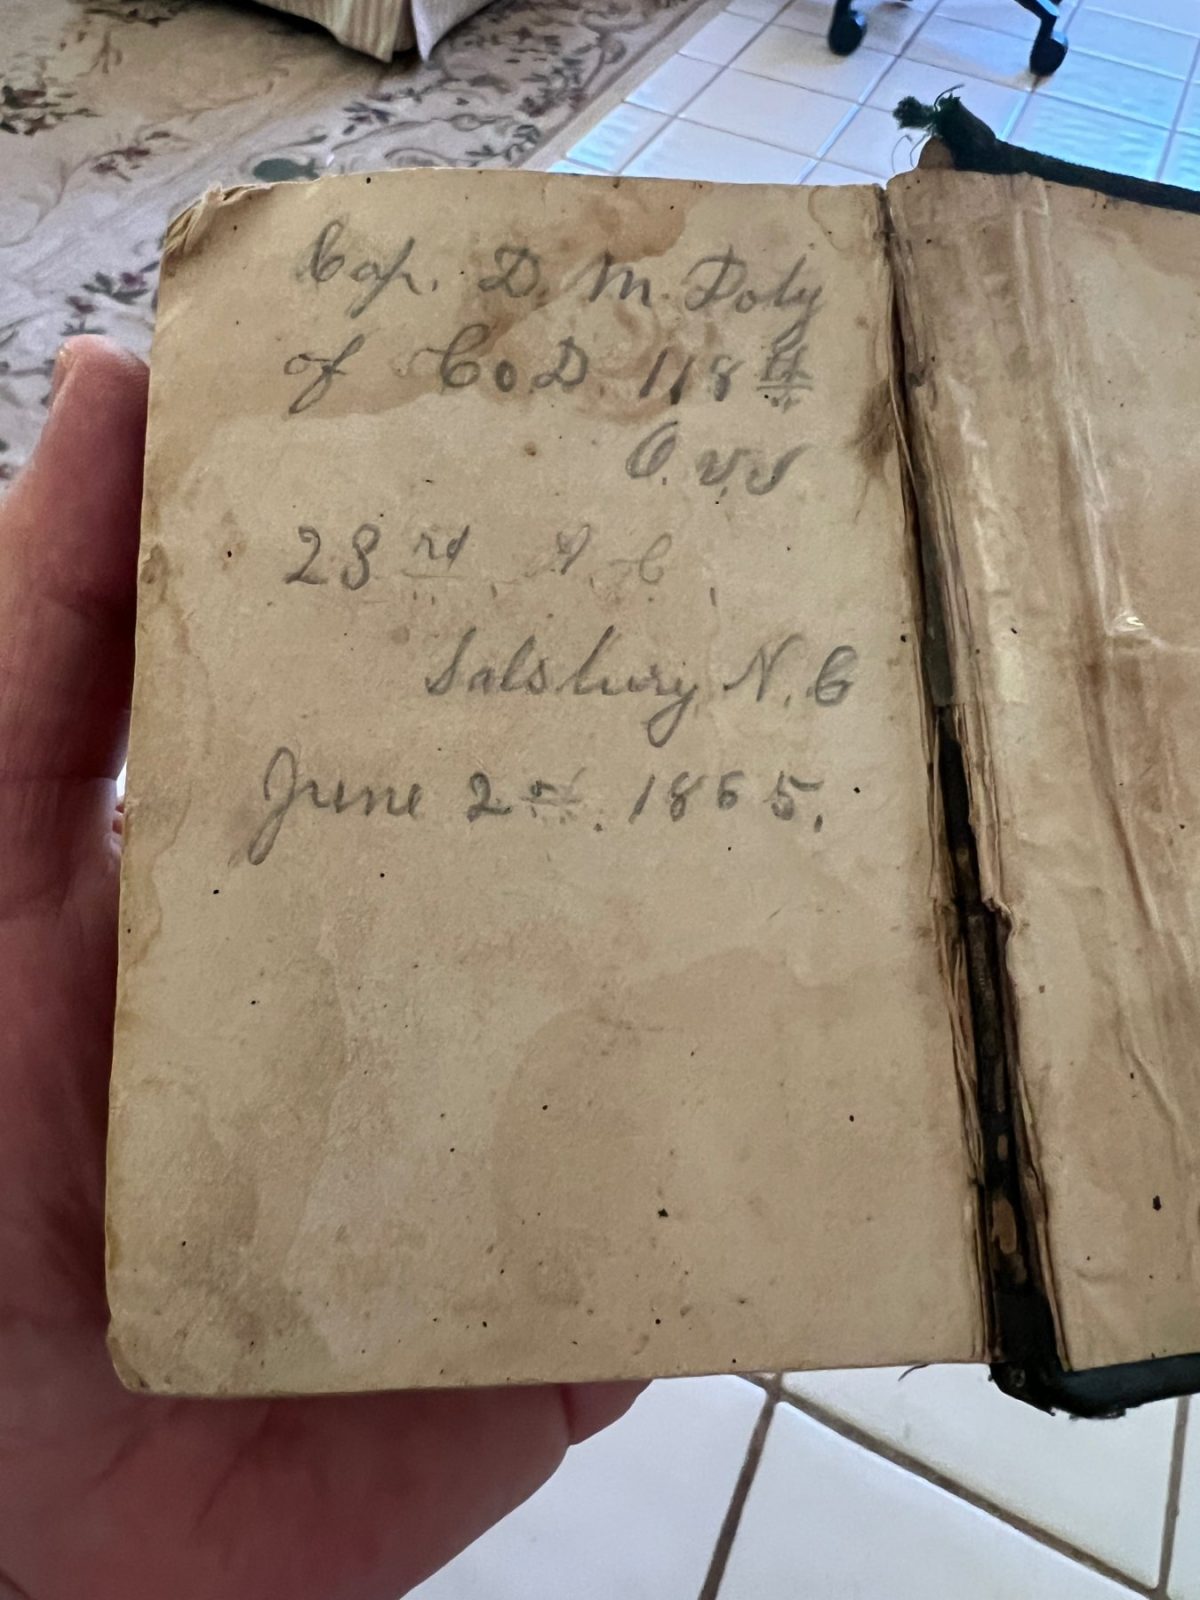 Cap. D. M. Doty
of Co D. 118th
O. V. I
23rd A C
Salsbury N. C
June 2nd. 1865.